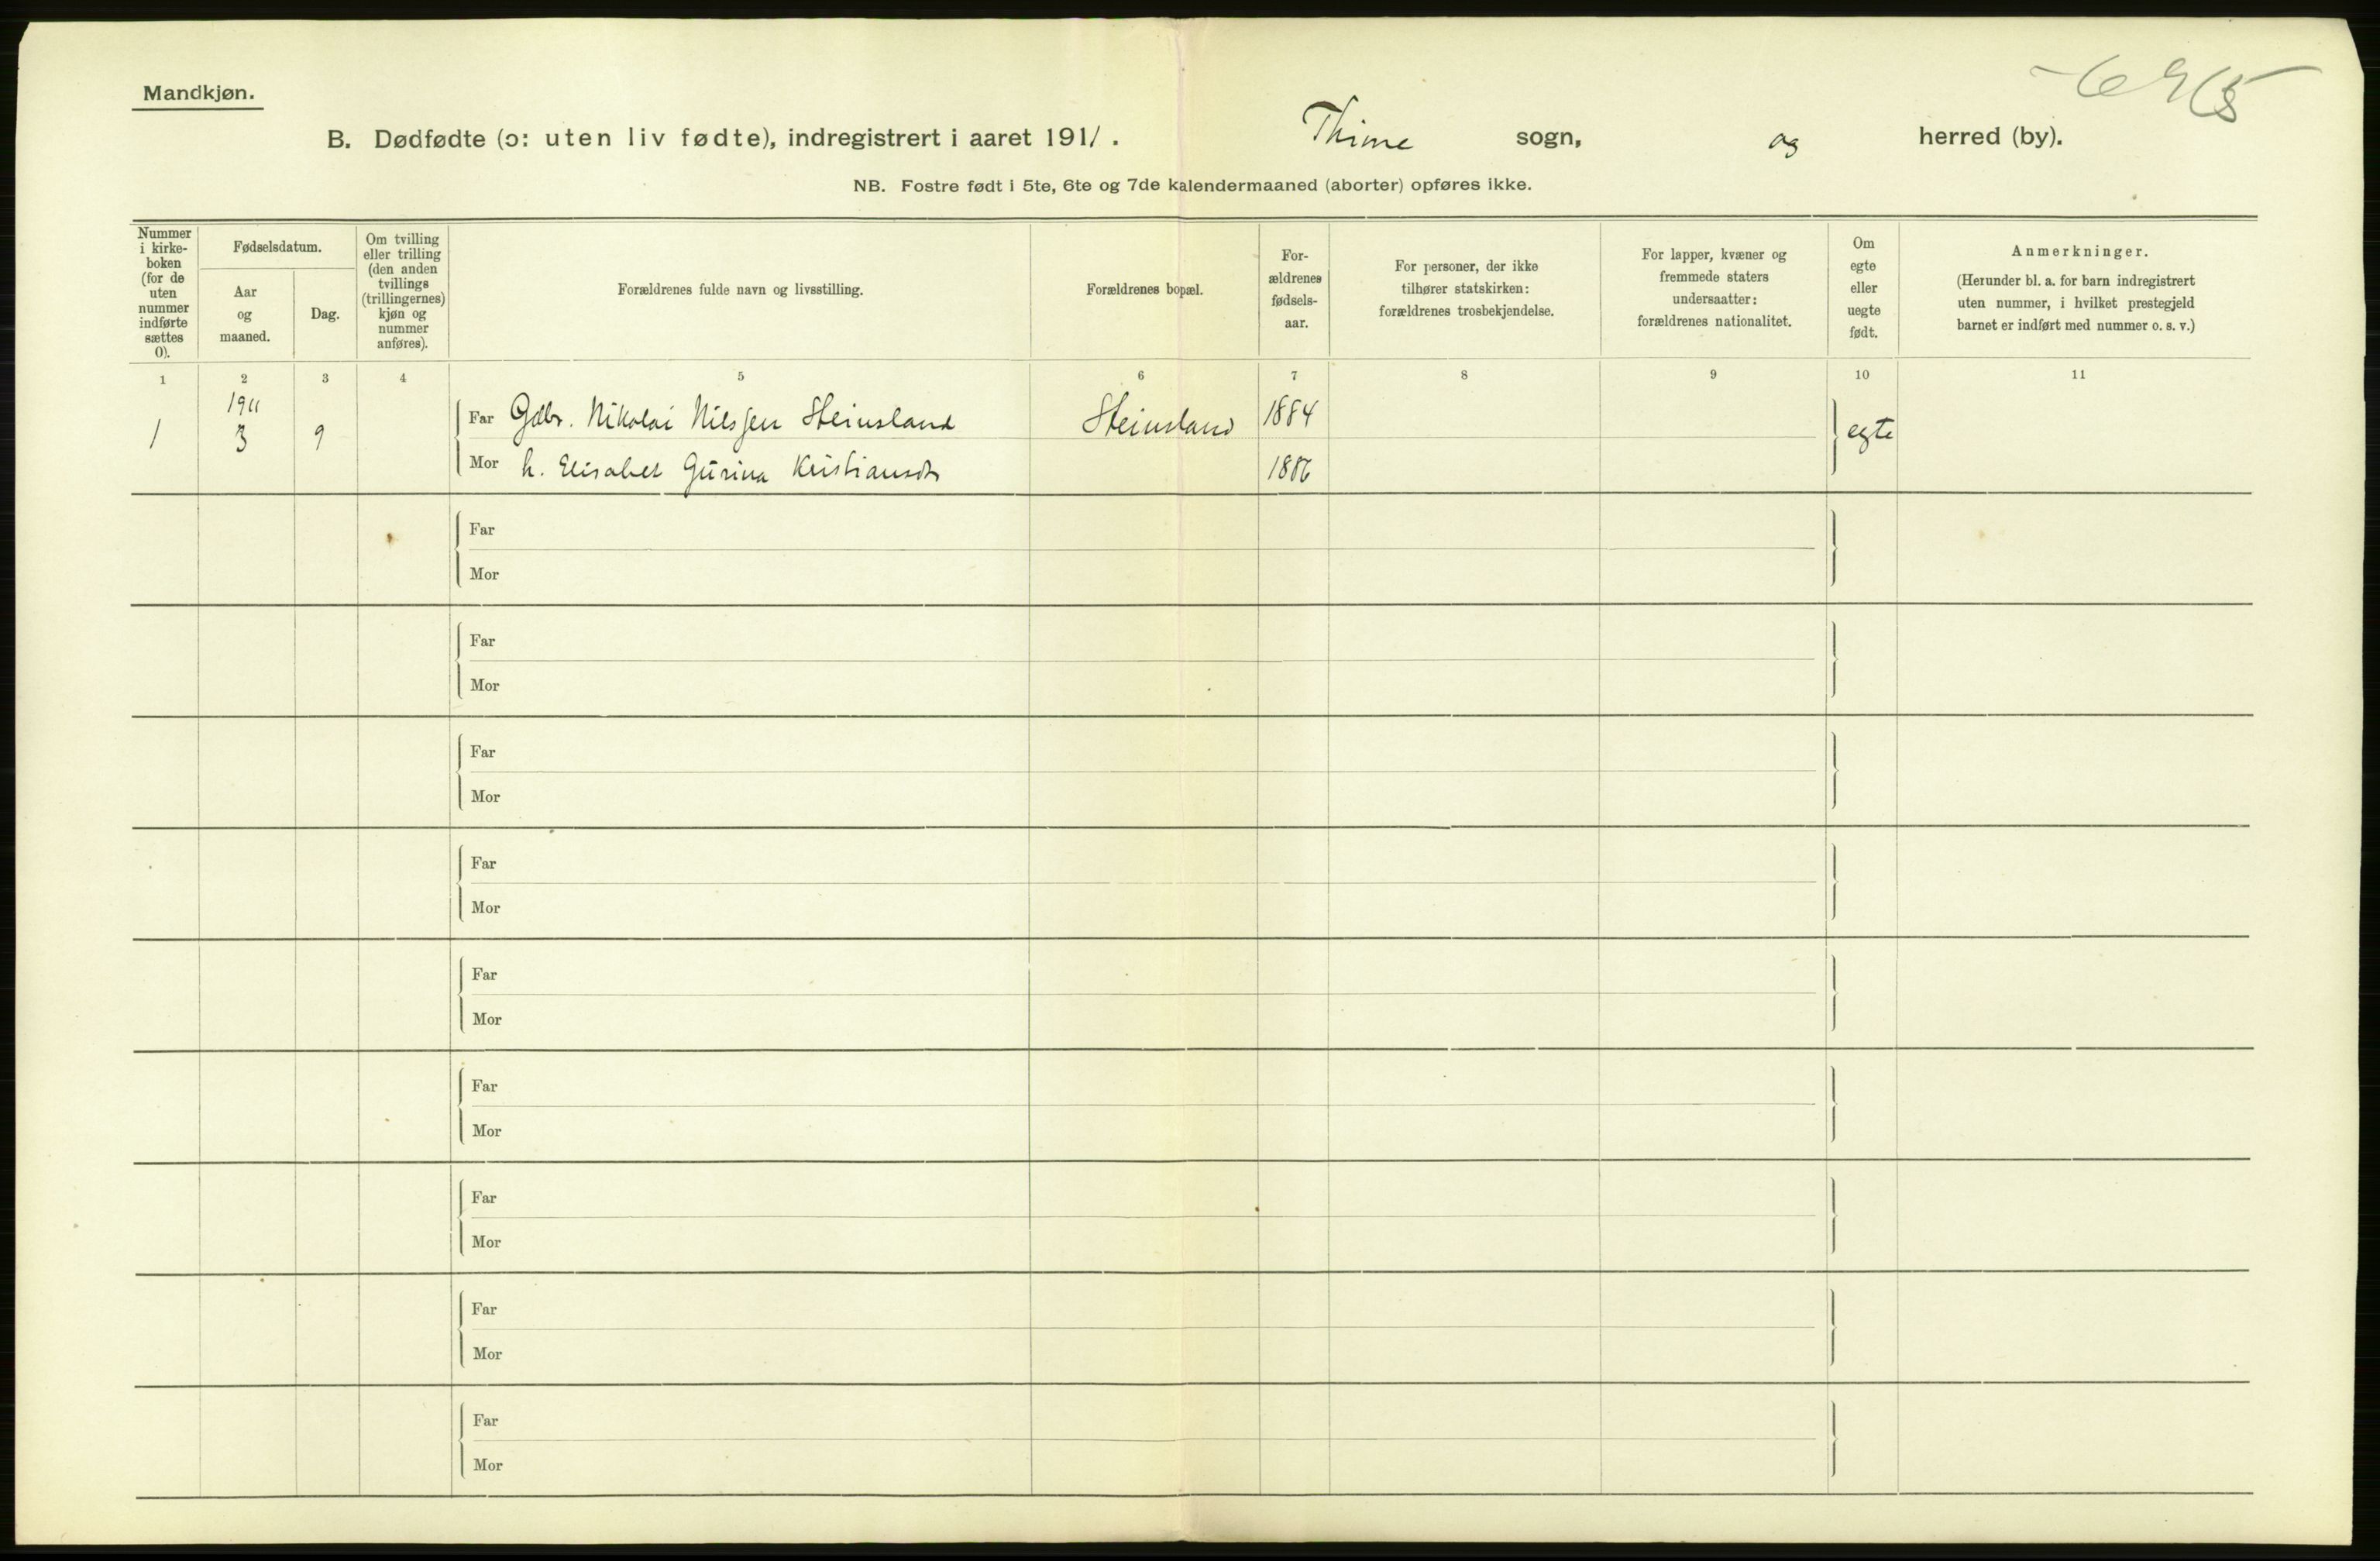 Mandkjøn.
B. Dødfødte (ɔ: uten liv fødte), indregistrert i aaret 1911. Thime sogn, og herred (by).
NB. Fostre født i 5te, 6te og 7de kalendermaaned (aborter) opføres ikke.
Nummer
i kirke-
boken
(for de
uten
nummer
indførte
sættes
0).
Fødselsdatum.
Aar
og
maaned.
Dag.
Om tvilling
eller trilling
(den anden
tvillings
(trillingernes)
kjøn og
nummer
anføres).
Forældrenes fulde navn og livsstilling.
Forældrenes bopæl.
For-
ældrenes
fødsels-
aar.
For personer, der ikke
tilhører statskirken:
forældrenes trosbekjendelse.
For lapper, kvæner og
fremmede staters
undersaatter:
forældrenes nationalitet.
Om
egte
eller
uegte
født.
Anmerkninger.
(Herunder bl. a. for barn indregistrert
uten nummer, i hvilket prestegjeld
barnet er indført med nummer o. s. v.)
1 2 3 4 5 6 7 8 9 10 11
1911
1 3 9 Far Gdbr. Nikolai Nilssen Steinsland Steinsland 1884 egte
Mor h. Elisabet Gurina Kristiansdtr 1886
Far
Mor
Far
Mor
Far
Mor
Far
Mor
Far
Mor
Far
Mor
Far
Mor
Far
Mor
Far
Mor